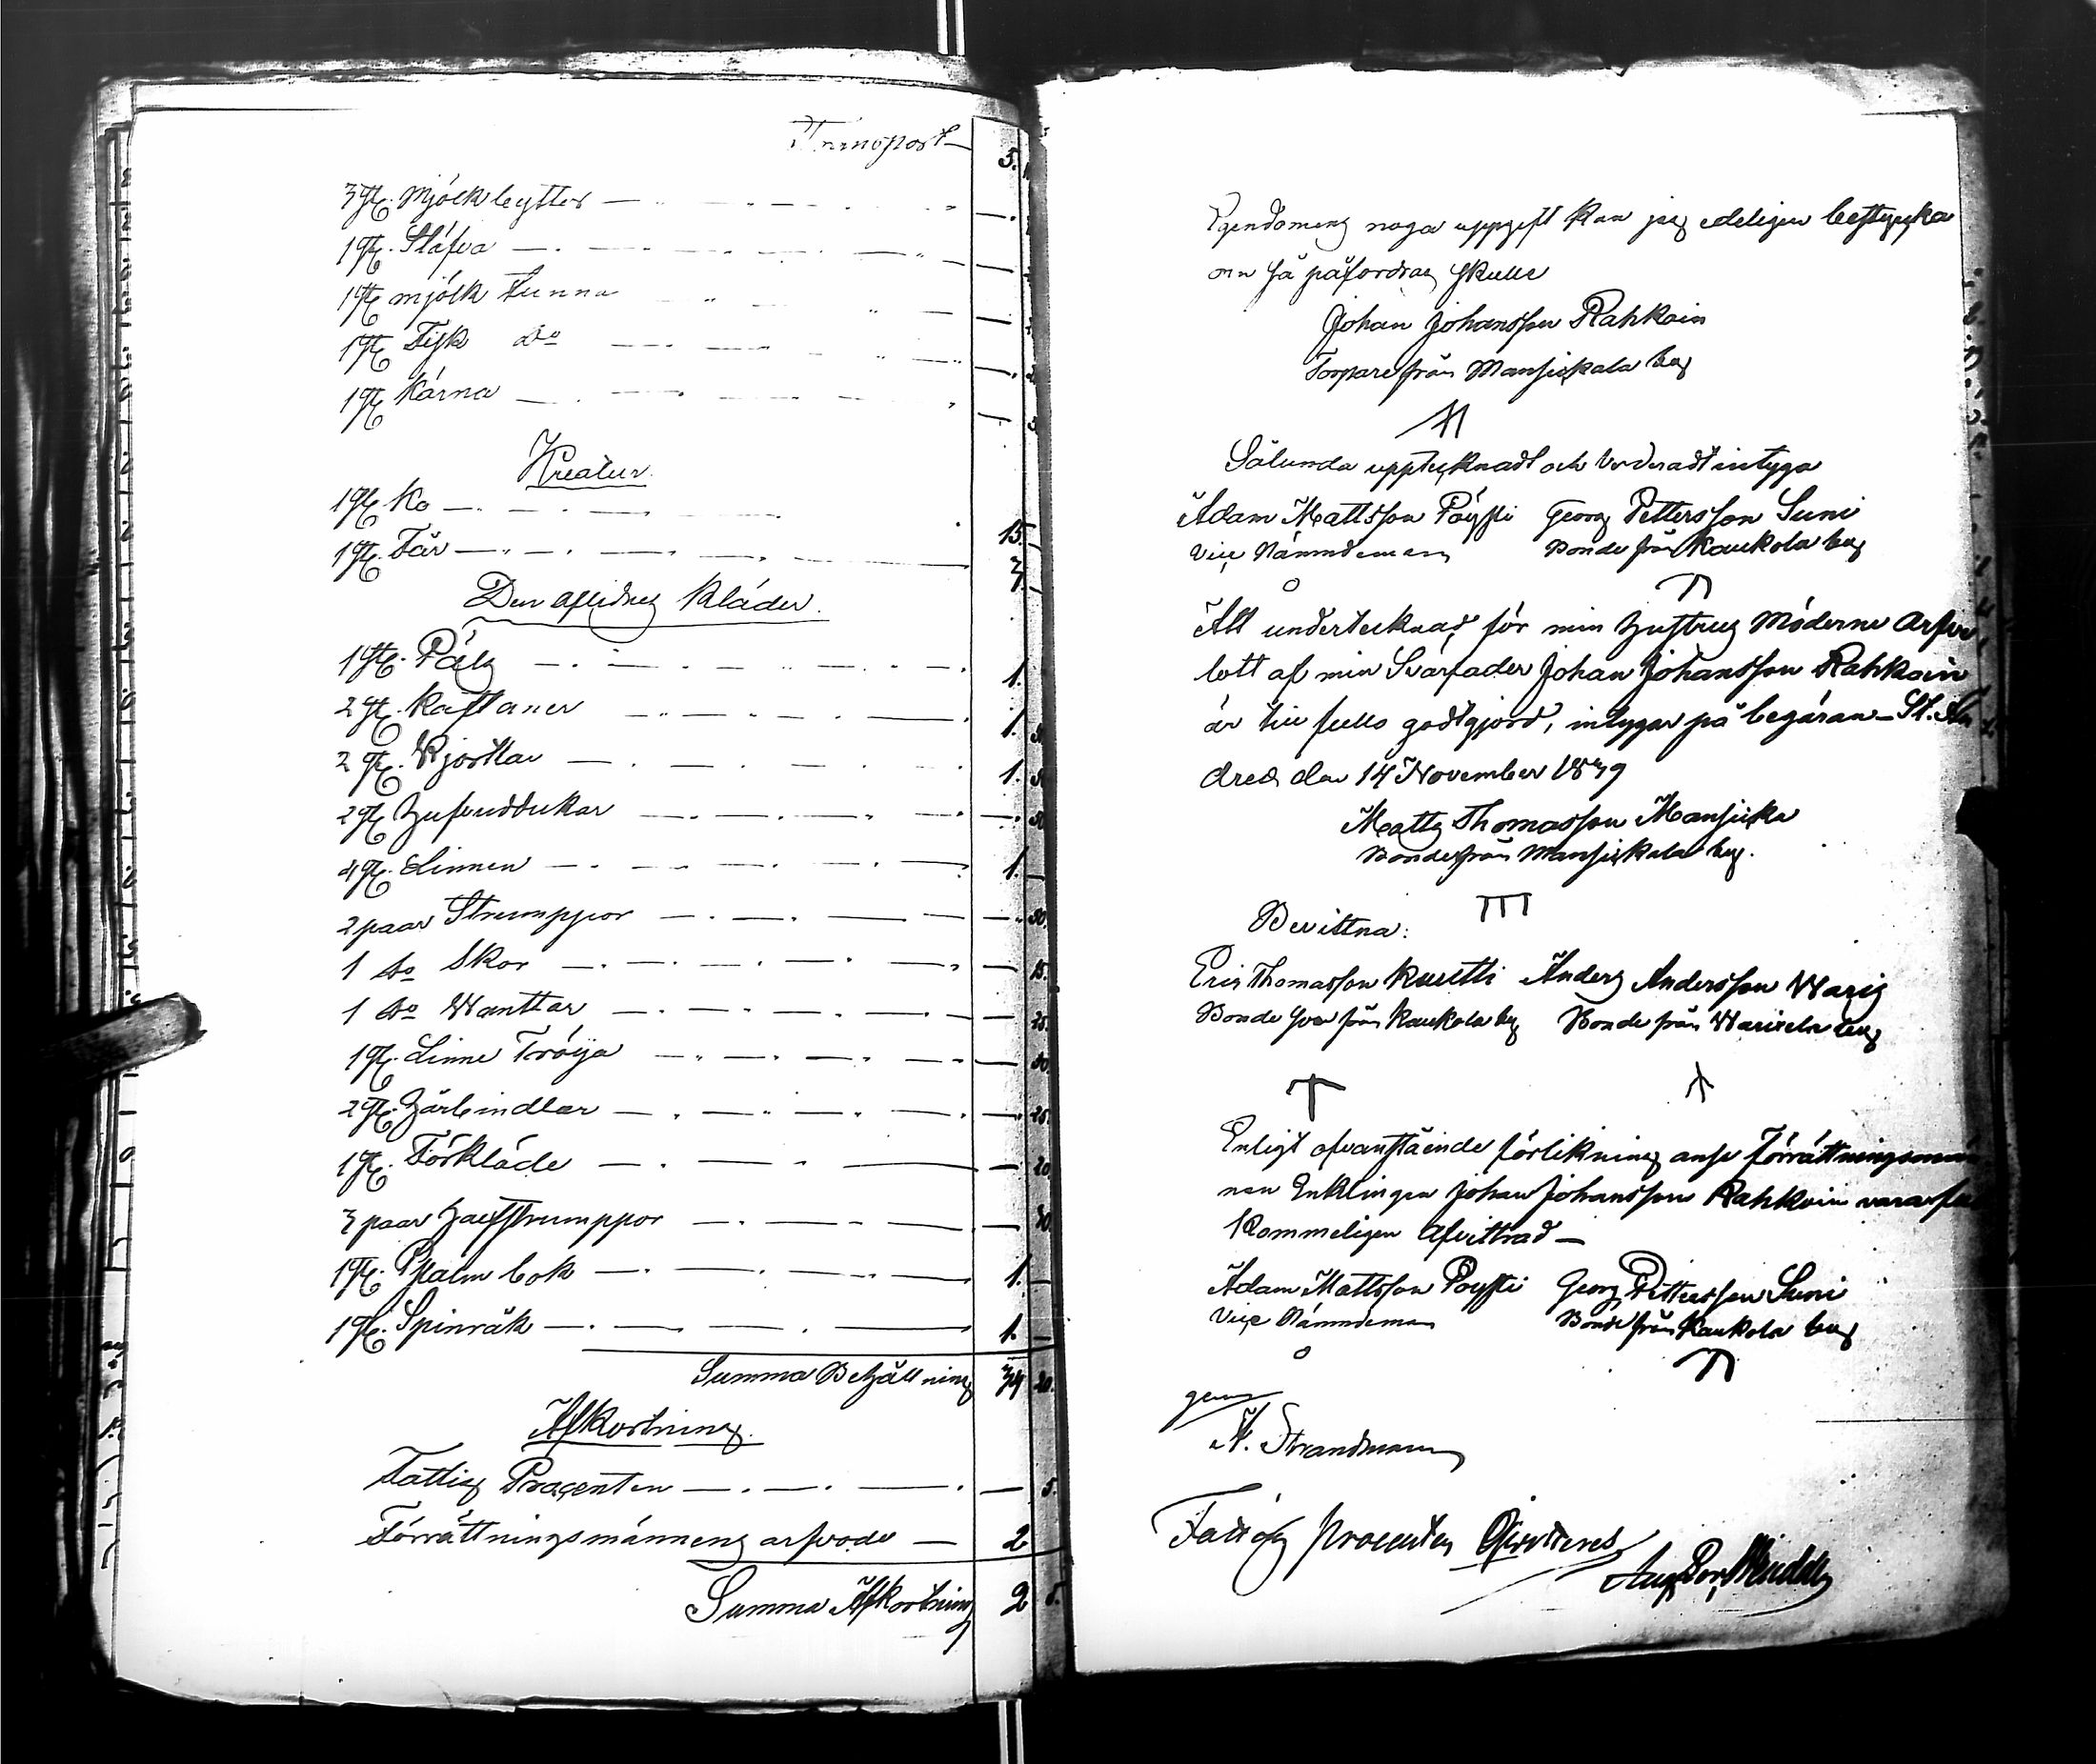 Transport 5.
3 st. Mjölkbyttor — —
1 st. Stäfva — —
1 st. mjölk tunna —
1 st. Fisk do — —
1 st. Kärna — —
Kreatur.
1 st. Ko — 15. —
1 st. Får — 7. —
Den aflidnes Kläder.
1 st. Päls — 1.
2 st. Kaftaner — 1. 50
2 st. Kjortlar — 1. 50
2 st. Hufvuddukar — — 50
4 st. Linnen — 1. —
2 paar Strumppor — — 50.
1 do Skor — — 15.
1 do Wanttar — — 25.
1 st. Linne Tröija — — 50.
2 st. Hårbindlar — — 25.
1 st. Förkläde — — 20
3 paar Halfstrumppor — — 30.
1 st. Psalm bok — 1. —
1 st. Spinråk — 1. —
Summa Behållning 34 20.
Afkortning.
Fattig Procenten — — 5.
Förrättningsmännens arfvode — 2
Summa Afkortning 2 5.
Egendomens noga uppgift kan jag edeligen bestyrka
om så påfordras skulle
Johan Johansson Rahkoin
Torpare från Mansikkala by
Sålunda upptecknadt och Värderadt intyga
Adam Mattsson Pöysti Georg Pettersson Suni
Vice Nämndeman Bonde från Kaukola by
Att undertecknad för min hustrus Möderne Arfve
lott af min Svärfader Johan Johansson Rahkoin
är till fullo godtgjord, intygar på begäran — St. An
dreæ den 14 November 1879
Matts Thomasson Mansikka
Bonde från Mansikkala by.
Bevittna:
Eric Thomasson Kuutti Anders Andersson Waris
Bonde Son från Kaukola by Bonde från Warixela by
Enligt ofvanstående förlikning anse Förrättningsmän
nen Enklingen Johan Johansson Rahkoin vara ful
kommeligen Afvittrad —
Adam Mattsson Pöysti Georg Pettersson Suni
Vice Nämndeman Bonde från Kaukola by
genom
A. Strandman
Fattig procenten Qvitteras
Aug.